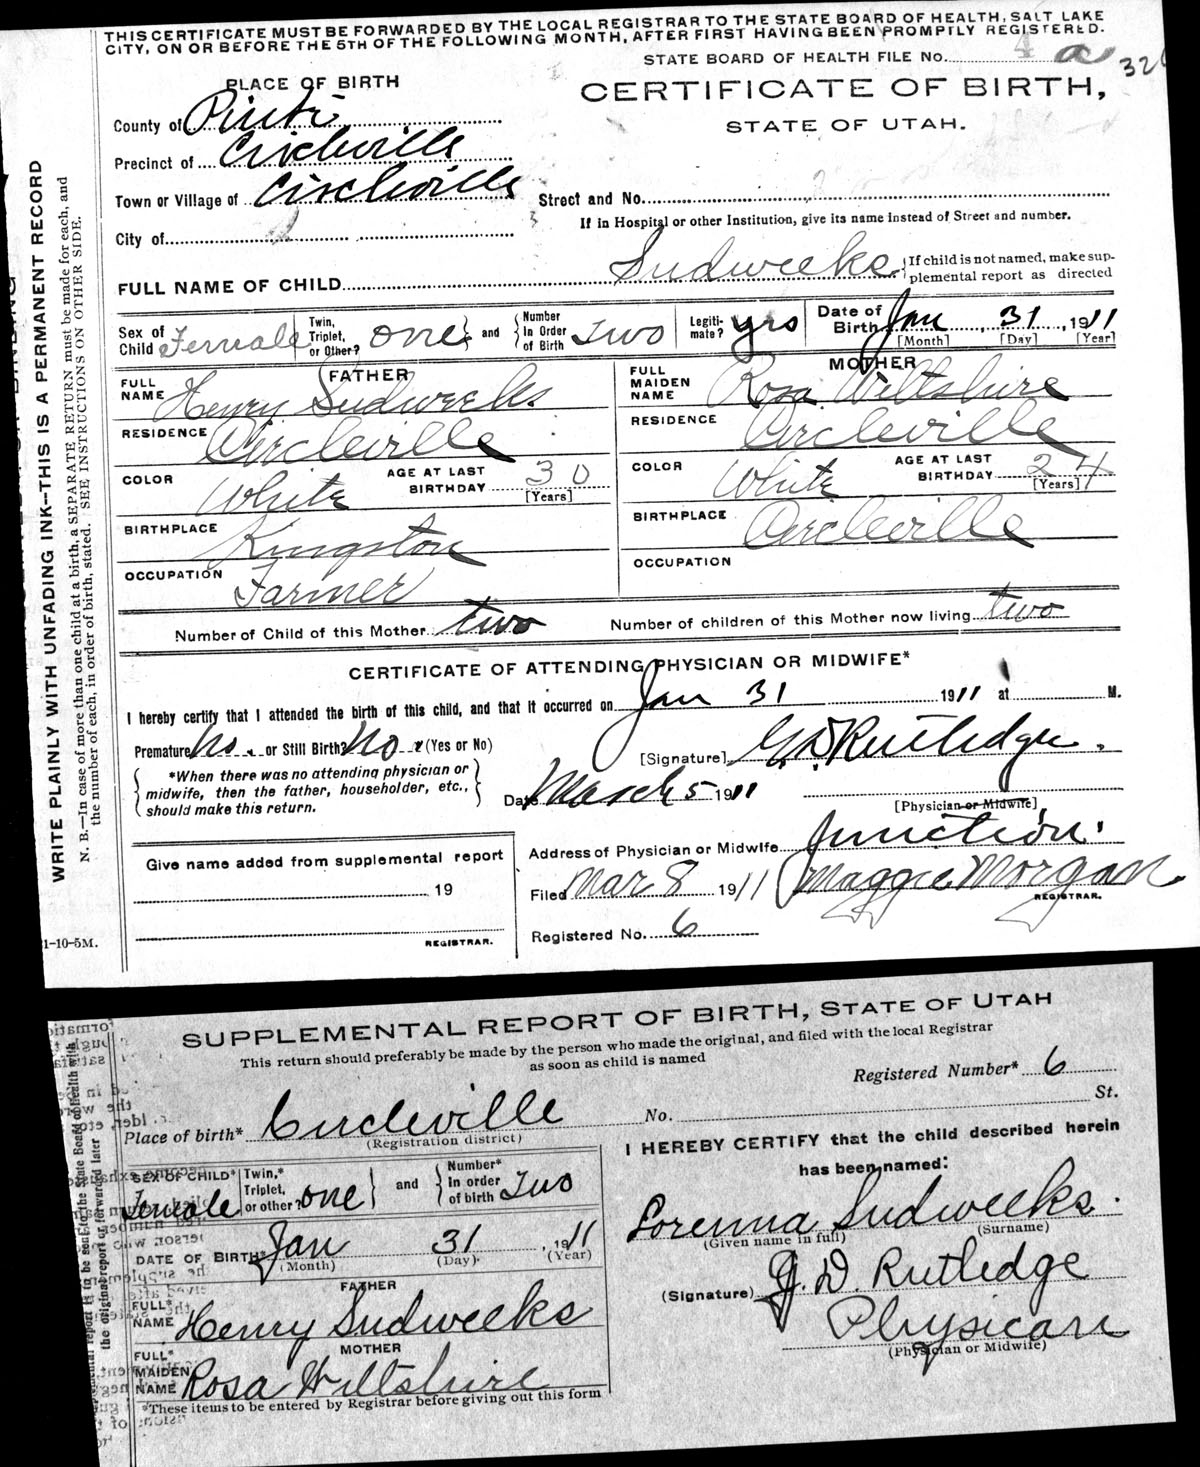 THIS CERTIFICATE MUST BE FORWARDED BY THE LOCAL REGISTRAR TO THE STATE BOARD OF HEALTH, SALT LAKE
CITY, ON OR BEFORE THE 5TH OF THE FOLLOWING MONTH, AFTER FIRST HAVING BEEN PROMPTLY REGISTERED.
STATE BOARD OF HEALTH FILE No. 4 a 32
PLACE OF BIRTH
CERTIFICATE OF BIRTH,
STATE OF UTAH.
County of Piute
Precinct of Circleville
Town or Village of Circleville Street and No.
If in Hospital or other Institution, give its name instead of Street and number.
City of
FULL NAME OF CHILD Sudweeks { If child is not named, make sup-
plemental report as directed
Sex of Child Female Twin, Triplet, or Other? one } and { Number In Order of Birth Two Legiti-mate? yes Date of Birth Jan 31, 1911
[Month] [Day] [Year]
FATHER MOTHER
FULL NAME Henry Sudweeks FULL MAIDEN NAME Rosa Wiltshire
RESIDENCE Circleville RESIDENCE Circleville
COLOR White AGE AT LAST BIRTHDAY 30 [Years] COLOR White AGE AT LAST BIRTHDAY 24 [Years]
BIRTHPLACE Kingston BIRTHPLACE Circleville
OCCUPATION Farmer OCCUPATION
Number of Child of this Mother two Number of children of this Mother now living two
CERTIFICATE OF ATTENDING PHYSICIAN OR MIDWIFE*
I hereby certify that I attended the birth of this child, and that it occurred on Jan 31 1911 at M.
Premature No. or Still Birth? No. (Yes or No)
[Signature] G D Rutledge.
{ *When there was no attending physician or
midwife, then the father, householder, etc.,
should make this return. }
Date March 5 1911
[Physician or Midwife]
Address of Physician or Midwife Junction.
Give name added from supplemental report
19
REGISTRAR.
Filed Mar 8 1911 Maggie Morgan
REGISTRAR.
Registered No. 6
1-10-5M.
WRITE PLAINLY WITH UNFADING INK--THIS IS A PERMANENT RECORD
N. B.—In case of more than one child at a birth, a SEPARATE RETURN must be made for each, and
the number of each, in order of birth, stated. SEE INSTRUCTIONS ON OTHER SIDE.
SUPPLEMENTAL REPORT OF BIRTH, STATE OF UTAH
This return should preferably be made by the person who made the original, and filed with the local Registrar
as soon as child is named
Registered Number* 6
Place of birth* Circleville No. St.
(Registration district)
I HEREBY CERTIFY that the child described herein
has been named:
SEX OF CHILD* Female Twin,* Triplet, or other? one } and { Number* In order of birth Two
Lorenna Sudweeks.
(Given name in full) (Surname)
DATE OF BIRTH* Jan 31, 1911
(Month) (Day) (Year)
(Signature) G. D Rutledge
Physican
(Physician or Midwife)
FATHER
FULL* NAME Henry Sudweeks
MOTHER
FULL* MAIDEN NAME Rosa Wiltshire
*These items to be entered by Registrar before giving out this form